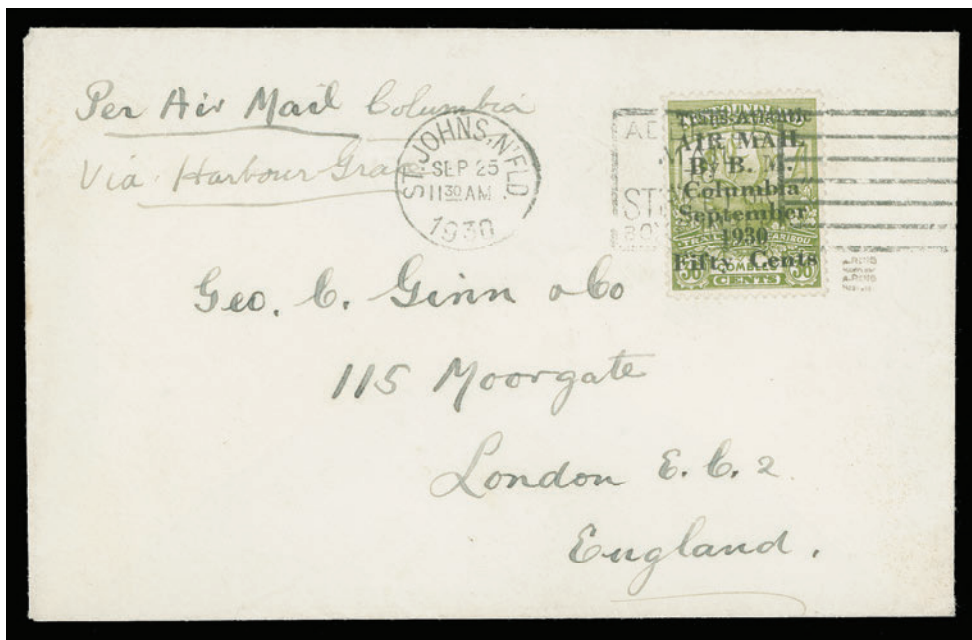 Per Air Mail Columbia
Via Harbour Grace
ST. JOHN'S, N'FLD.
SEP 25
11 30 AM
1930
Trans-Atlantic
AIR MAIL
By B. M.
Columbia
September
1930
Fifty Cents
36 36
CENTS
Geo. C. Ginn & Co
115 Moorgate
London E.C. 2.
England.